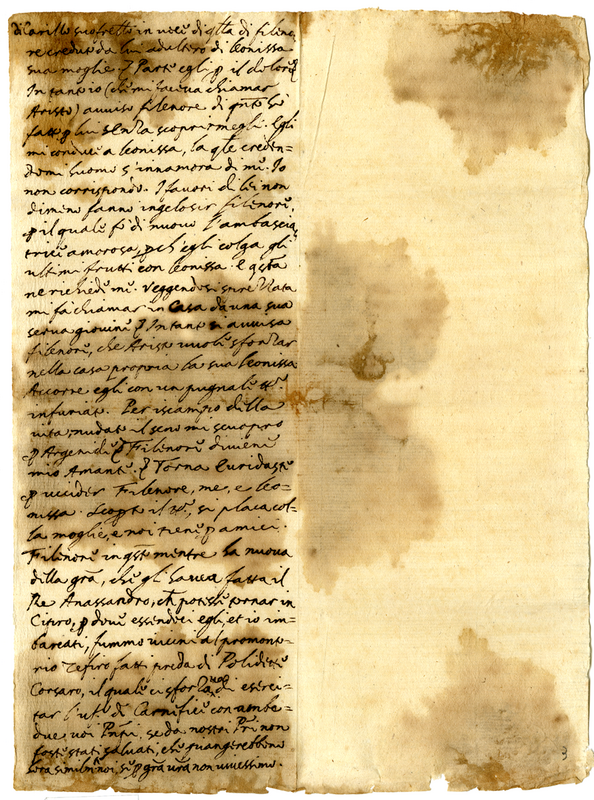 di Carillo suo fratello in vece di qlla di fileno
re creduto da lui adultero di leonissa
sua moglie. Parte egli p il dolore
In tanto io (che mi faceva chiamar
Aristo) avviso filenore di qnto si
fatto p lui senza scoprirmegli. Egli
mi conduce a leonissa, la qle creden=
domi huomo s'innamora di me. Io
non corrispondo. I favori di lei non
dimeno fanno ingelosir filenore
p il quale fo di nuovo l'ambascia
trice amorosa, pch'egli colga gli
ultimi frutti con leonissa. E qsta
ne richiede me. Veggendosi sprezzata
mi fa chiamar in casa da una sua
serva giovine. Intanto si avvisa
filenore, che Aristo vuole sforzar
nella casa propria la sua leonissa
Accorre egli con un pugnale
infuriato. Per iscampo della
vita, nudato il seno mi scuopro
p Argenide. Filenore diviene
mio Amante. Torna Euridaste
p uccider Filenore, me, e leo=
nissa. si placa col=
la moglie, e noi tiene p amici.
Filenore in qsto mentre ha nuova
della gra, che gli haveva fatta il
Re Anassandro, ch potesse tornar in
Citiro, p dove essendoci egli, et io im=
barcati, fummo vicini al promonto=
rio Zefiro fatti preda di Polidette
Corsaro, il quale ci sforzava di eserci=
tar l'ufo di Carnefici con ambe=
due voi Pnpi, se da nostri Pri non
foste stati salvati, che piangerebbono
hora similmte noi, se p gra vra non vivessimo.
3